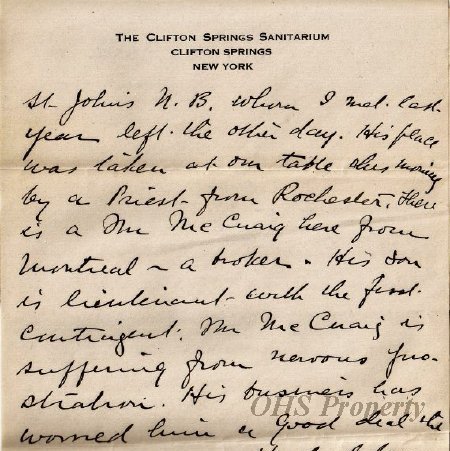 THE CLIFTON SPRINGS SANITARIUM
CLIFTON SPRINGS
NEW YORK
St. Johns N. B. whom I met last
year left the other day. His place
was taken at our table this morning
by a Priest from Rochester. There
is a Mr McCuaig here from
Montreal - a broker. His son
is lieutenant with the first
contingent. Mr McCuaig is
suffering from nervous pro-
stration. His business has
worried him a good deal the
OHS Property